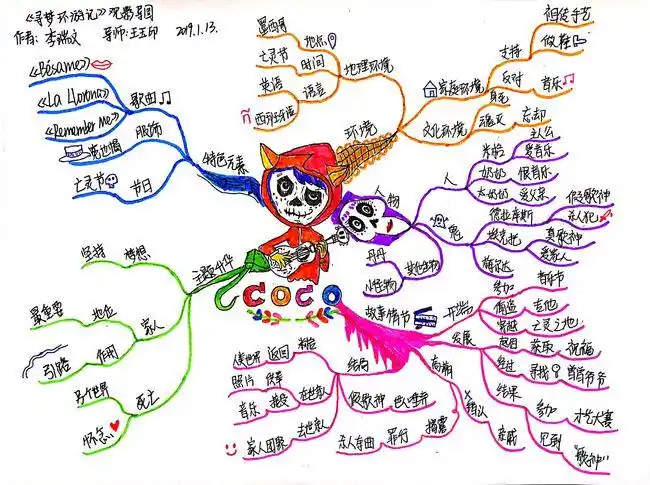 《寻梦环游记》观影导图
作者: 李瑞文 导师: 王玉印 2019.1.13.
《Bésame》
《La llorona》
《Remember me》
歌曲
宽边帽
服饰
亡灵节
节日
特色元素
墨西哥
地点
亡灵节
时间
英语
西班牙语
语言
地理环境
环境
家庭环境
支持
祖传手艺
做鞋
反对
音乐
文化环境
身死
魂灭
忘却
人物
人
米格
主人公
爱音乐
奶奶
恨音乐
太奶奶
爱父亲
鬼
德拉库斯
假歌神
杀人犯
埃克托
真歌神
爱家人
梅尔达
其他生物
丹丹
主题升华
坚持
梦想
最重要
地位
引路
作用
家人
另个世界
怀念
死亡
COCO
故事情节
开端
参加
音乐节
偷盗
吉他
穿越
亡灵之地
发展
返回
获取
祝福
经过
寻找
结果
参加
才艺大赛
见到
"歌神"
高潮
确认
亲戚
揭露
罪行
杀人夺曲
结局
米格
返回
人世
照片
音乐
假歌神
家人团聚